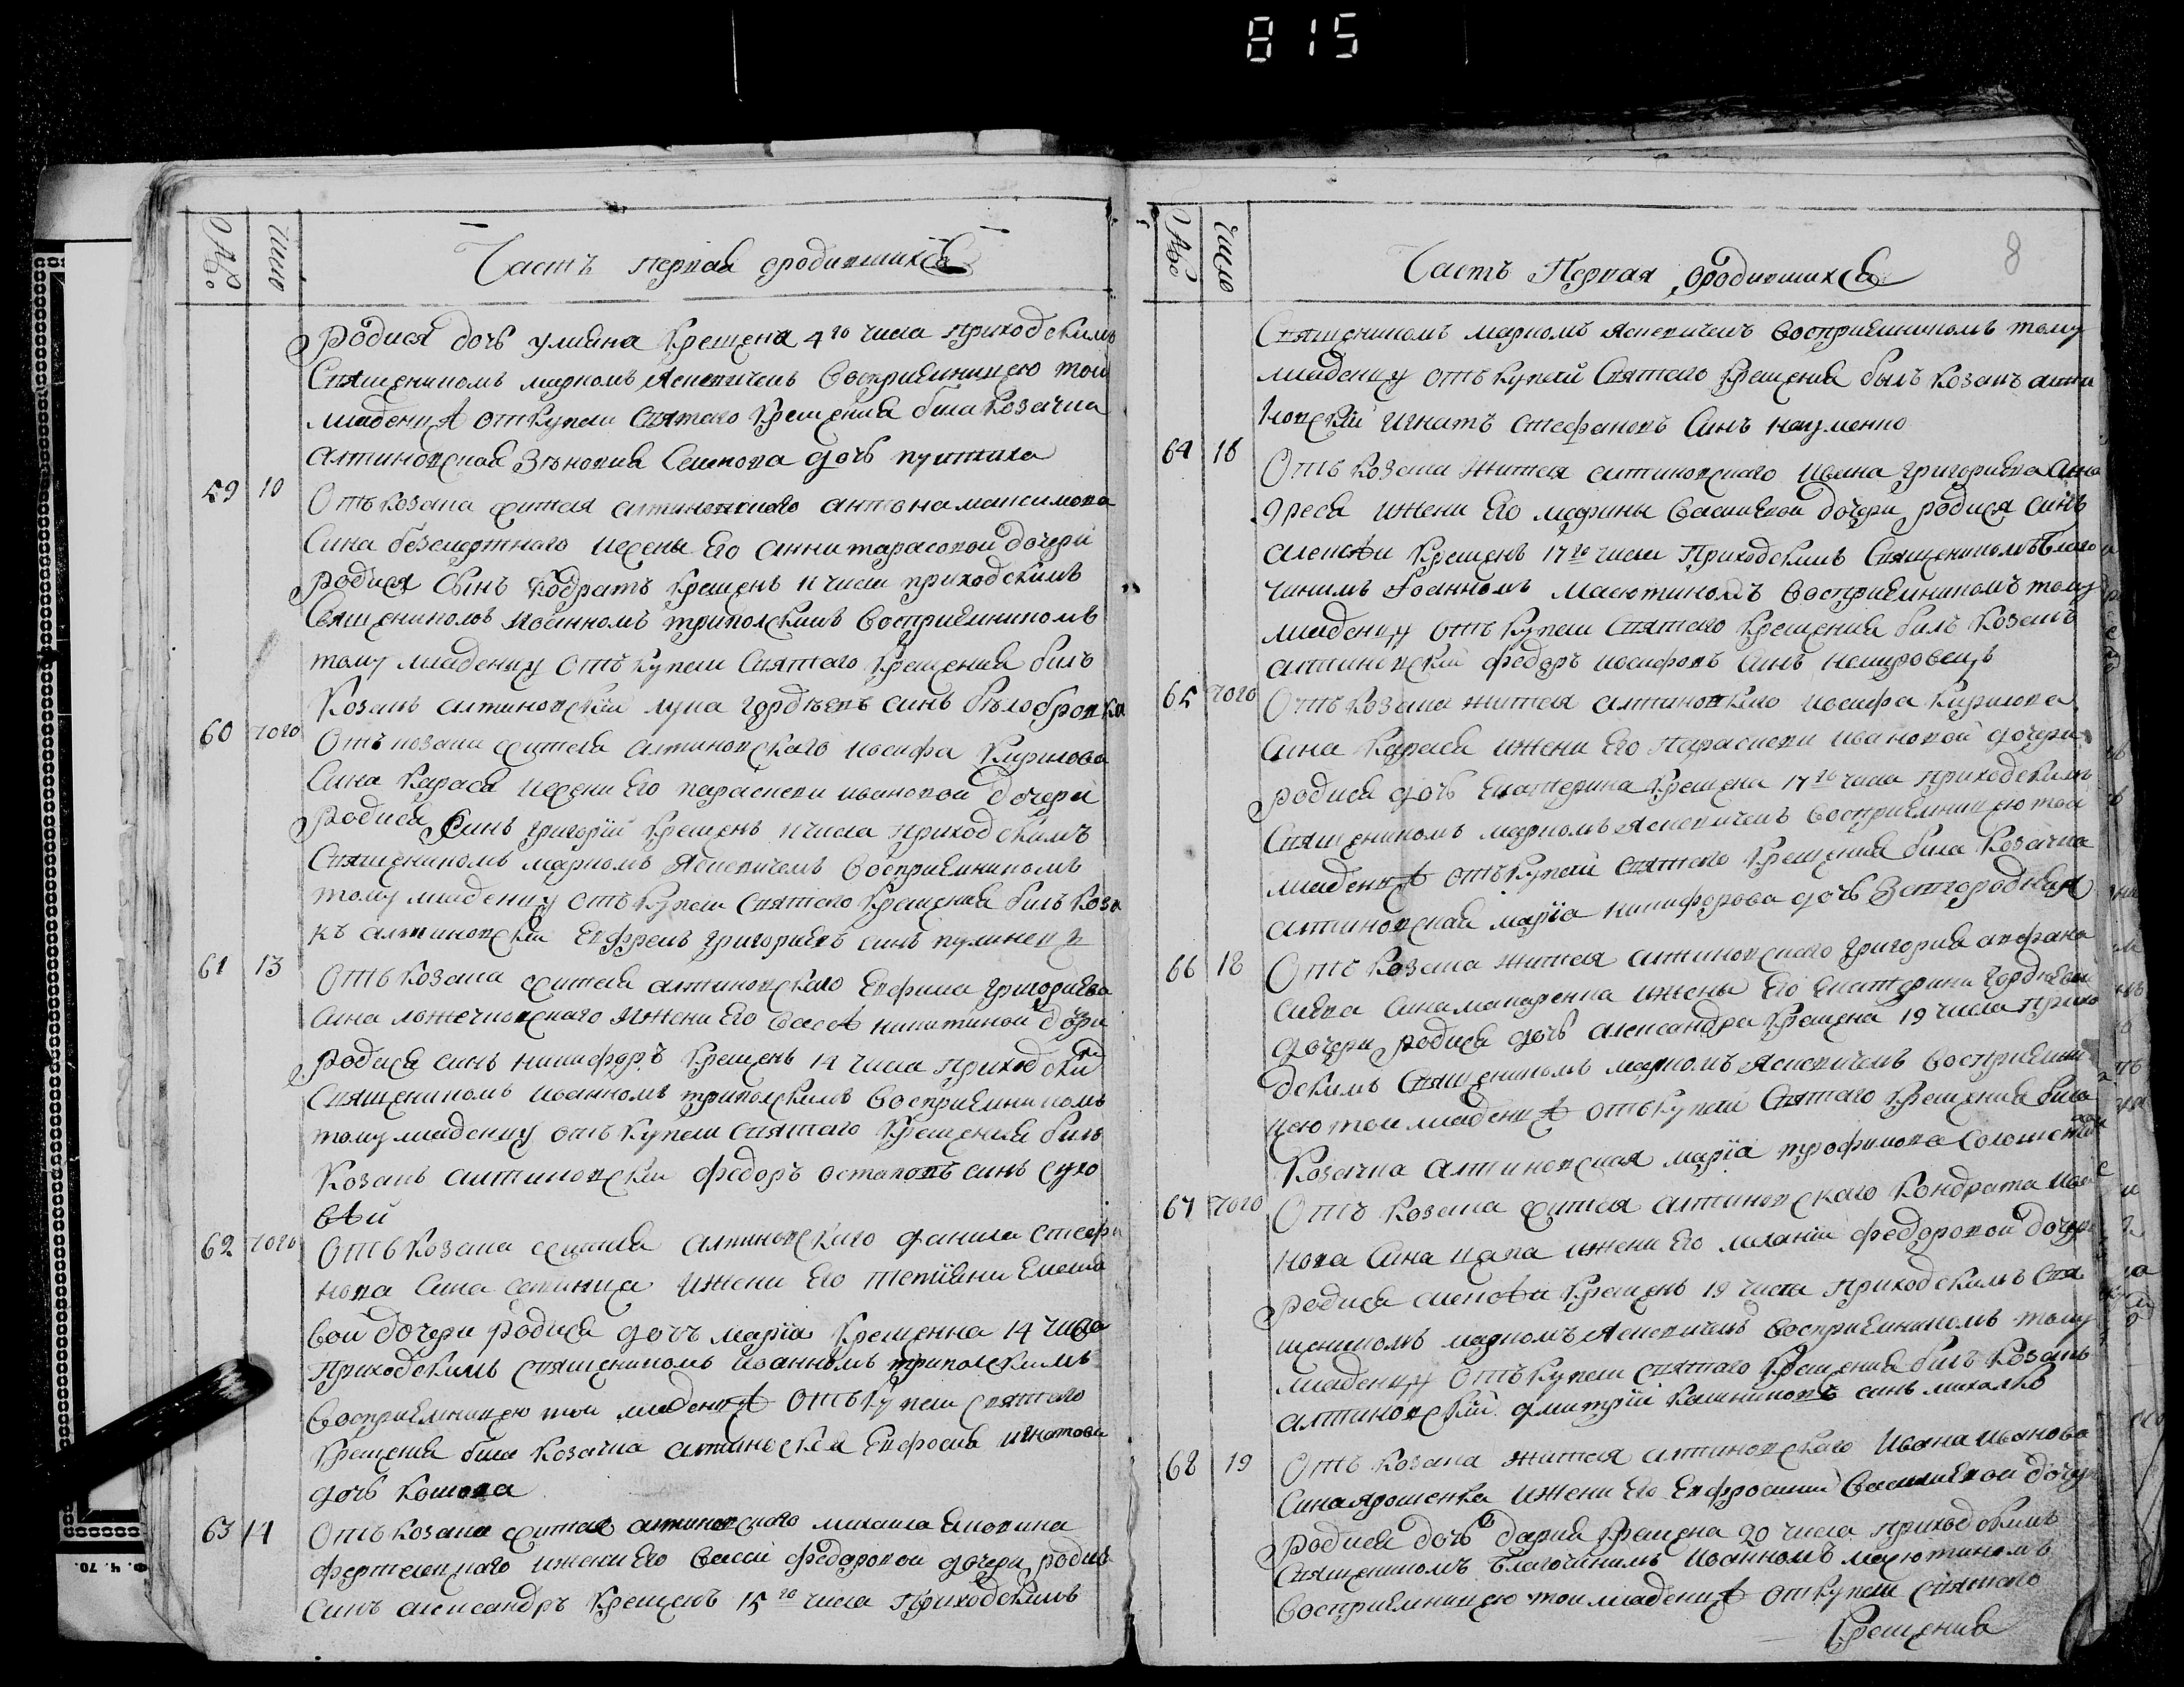 815
№
число
Часть первая ородившихся
родися дочь улияна крещена 4го числа приходскимъ
Священикомъ маркомъ Ясневичемъ Восприемницею тои
младеницѣ от купели Святаго крещения била козачка
алтиновская Зѣновия Семнова дочь
59 10 Отъ козака жителя алтиновского антона максимова
Сина безсмертного ижены Его Анни тарасовой дочери
родися Сынъ кодратъ крещенъ 11 числа приходскимъ
Священикомъ Иоанномъ триполскимъ Восприемникомъ
тому младенцу отъ купели Святаго крещения билъ
Козакъ алтиновский лука гордѣевъ синъ бѣлобровка
60 того Отъ козака жителя алтиновскаго иосифа Кирилова
Сина Карася ижени Его параскеви ивановой дочери
родися Синъ григорий крещенъ 11 числа приходскимъ
Священикомъ маркомъ Ясневичемъ Восприемникомъ
тому младенцу отъ купели Святаго крещения билъ коза
къ алтиновский Евфремъ григориевъ синъ
61 13 Отъ козака жителя алтиновскаго Евфима григориева
Сина ижени Его Вассѣ никитиной дочери
родися синъ никифоръ крещенъ 14 числа приходскимъ
Священикомъ иоанномъ триполскимъ Восприемникомъ
тому младенцу отъ купели Святаго крещения билъ
Козакъ алтиновский федоръ остаповъ синъ сухо
вѣй
62 того Отъ козака жителя алтиновскаго данила стефа
нова Сина ижени Его
вои дочери родися дочъ мария крещенна 14 числа
приходскимъ священикомъ иоанномъ триполскимъ
Восприемницею тои младеницѣ отъ купели святаго
крещения била козачка алтиновская Евфросия игнатова
дочь
63 14 Отъ козака жителя алтиновского михаила
ижени Его Васси федоровои дочери родися
синъ александръ крещенъ 15го числа приходскимъ
№
число
Часть Первая ородившихся
8
Священикомъ маркомъ Ясневичемъ восприемникомъ тому
младенцу отъ купели Святаго крещения былъ козакъ алти
новский игнатъ стефановъ Синъ науменко
64 16 Отъ козака жителя алтиновского ивана григориева Сина
ижени Его марины Василиевой дочери родися синъ
алексѣи крещенъ 17го числа Приходскимъ Священикомъ Благо
чинимъ Иоанномъ Масютиномъ Восприемникомъ тому
младенцу отъ купели Святаго крещения билъ козакъ
алтиновский федоръ иосифовъ Синъ немировецъ
65 того Отъ козака жителя алтиновскаго иосифа Кирилова
Сина Карася ижени Его Параскеви ивановой дочери
родися дочь Екатерина крещена 17го числа приходскимъ
Священикомъ маркомъ Ясневичемъ Восприемницею тои
младеницѣ отъ купели святаго крещения била козачка
алтиновская мария никифорова дочь
66 18 Отъ козака жителя алтиновского григория афана
сиева Сина макаренка ижены Его Екатерини гордѣевой
дочери родися дочь александра крещена 19 числа прихо
дскимъ Священикомъ маркомъ Ясневичемъ восприемни
цею тои младеницѣ отъ купели Святаго крещения била
Козачка алтиновская мария трофимова
67 того Отъ козака жителя алтиновскаго Кондрата
нова Сина цапа ижени Его мелании федоровой дочери
родися алексѣи крещенъ 19 числа приходскимъ Свя
щеникомъ маркомъ Ясневичемъ восприемникомъ тому
младенцу отъ купели святаго крещения билъ козакъ
алтиновский дмитрий синъ михалко
68 19 Отъ козака жителя алтиновскаго ивана иванова
Сина ярошенка ижени Его Евфросинии Василиевой дочери
родися дочь дария крещена 20 числа приходскимъ
Священикомъ Благочинимъ Иоанномъ масютиномъ
Восприемницею тои младеницѣ от купели святаго
крещения